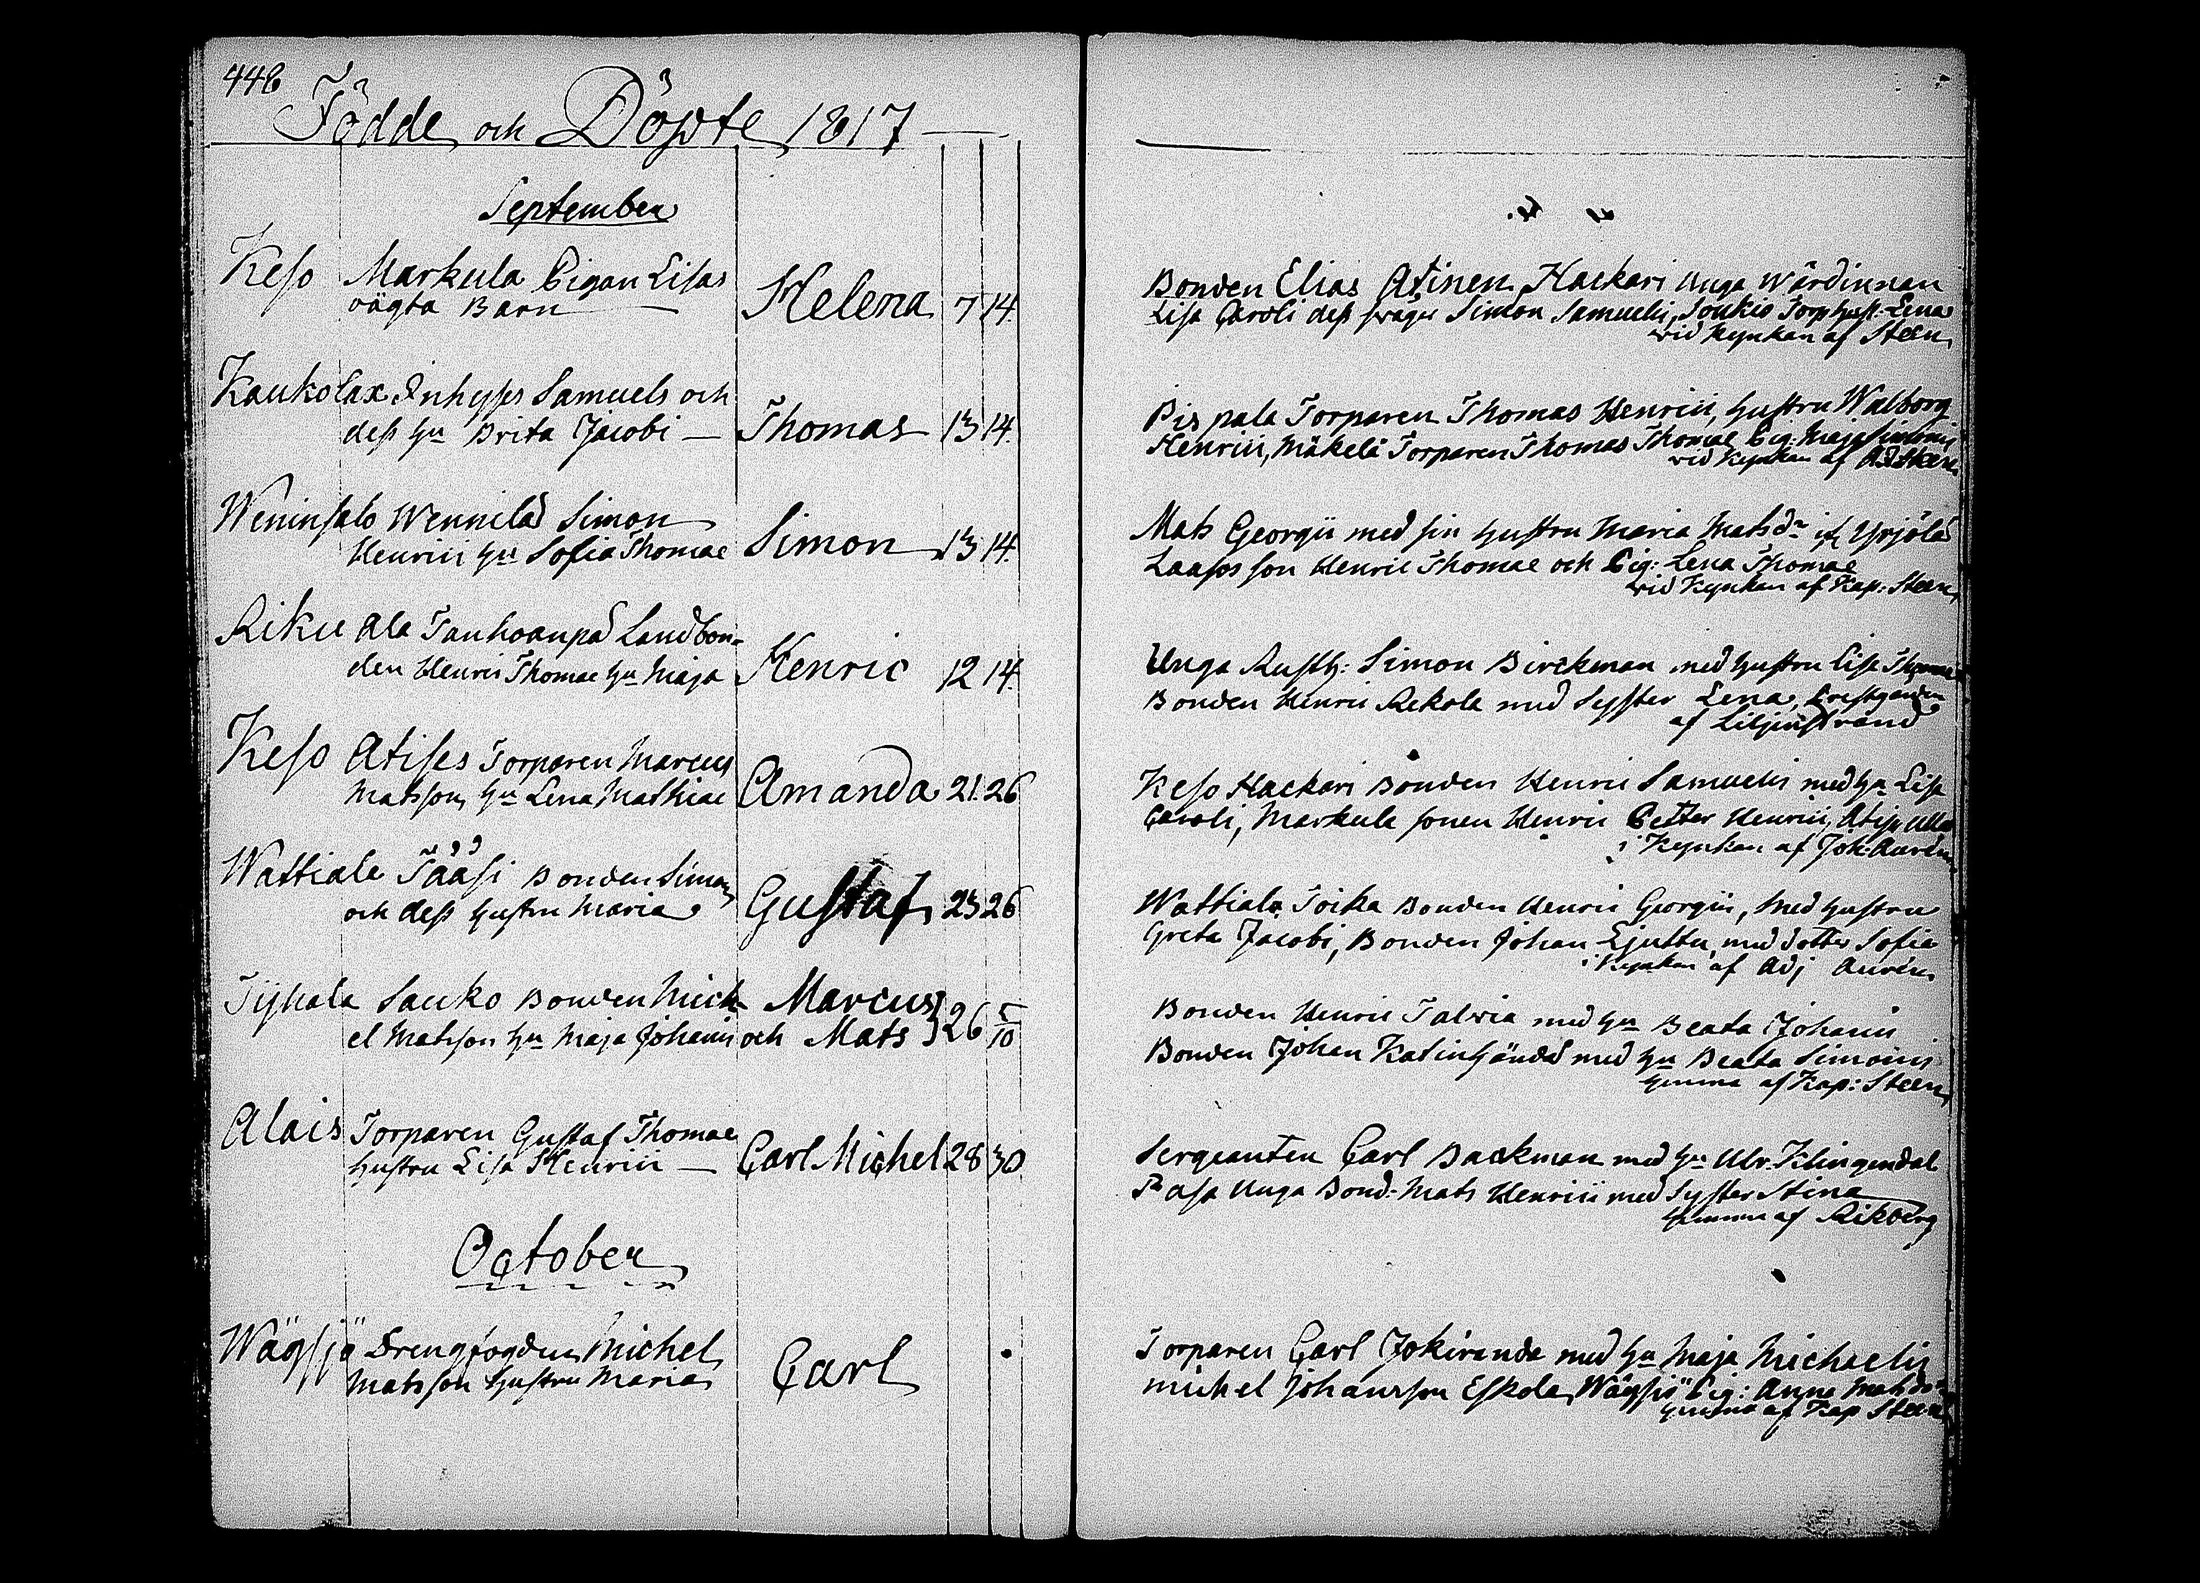 446
Födde och Döpte 1817
September
Keso Markula Pigan Lisas
oägta Barn Helena 7 14
Kaukolax Inhyses Samuels och
dess hu Brita Jacobi Thomas 13 14
Weninsalo Wennilä Simon
Henrici hu Sofia Thomae Simon 13 14
Riku Ala Tanhoanpä Landbon-
den Henric Thomae hu Maja Henric 12 14
Keso Atises Torparen Marcus
Matsson hu Lena Mathiae Amanda 21 26
Wattiala Tääsi Bonden Simon
och dess hustru Maria Gustaf 23 26
Tyhala Sauko Bonden Mich- Marcus
el Matsson hu Maja Johanis och Mats 26 5/10
Alais Torparen Gustaf Thomae
hustru Lisa Henrici Carl Michel 28 30
October
Wägsjö Drengfogden Michel
Matsson hustru Maria Carl
Bonden Elias Atinen Hackari unga Wärdinnan
Lisa Caroli dess swåger Simon Samuelis, Soukio Torp hust: Lena
wid Kyrkan af Steen
Pispala Torparen Thomas Henrici, hustru Walborg
Henrici, Mäkelä Torparen Thomas Thomae Pig: Maja Simonis
wid Kyrkan af
Mats Georgii med sin hustru Maria Matsdr if Yrjölä
Laasos son Henric Thomae och Pig: Lena Thomae
wid Kyrkan af Kap: Steen
Unga Rusth: Simon Birckman med hustru Lisa Thomae
Bonden Henric Rekola med Syster Lena, Prestgården
af Liljestrand
Keso Hackari Bonden Henric Samuelis med hu Lisa
Caroli, Markula sonen Henric Petter Henrici, Atis Ulla
i Kyrkan af Joh: Aurén
Wattiala Toika Bonden Henric Georgii, med hustru
Greta Jacobi, Bonden Johan Ljuttu med dotter Sofia
i Kyrkan af Adj Aurén
Bonden Henric Talvia med hu Beata Johanis
Bonden Johan Katinhändä med hu Beata Simonis
hemma af Kap: Steen
Sergeanten Carl Backman med hu Ulr. Klingendal
Pasa Unga Bond: Mats Henrici med Syster Stina
hemma af Rikberg
Torparen Carl Jokiranda med hu Maja Michaelis
Michel Johansson Eskola, Wägsjö Pig: Anna Matsdr
hemma af Kap Steen